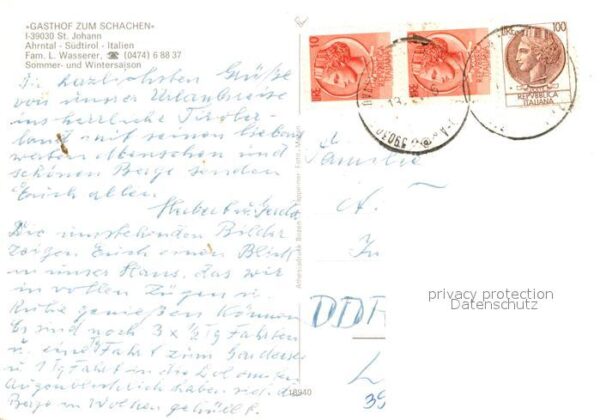 «GASTHOF ZUM SCHACHEN»
I-39030 St. Johann
Ahrntal - Südtirol - Italien
Fam. L. Wasserer, ☎ (0474) 6 88 37
Sommer- und Wintersaison
Die herzlichsten Grüße
von unser Urlaubsreise
ins herrliche Tiroler-
land mit seinen
Menschen und
schönen Berge senden
Euch allen
Die umstehenden Bilder
zeigen Euch einen Blick
in unser Haus, das wir
in vollen Zügen u.
Ruhe genießen können
Es sind noch 3 x ½ Tg Fahrten
u. eine Fahrt zum Gardasee
u 1 Tg Fahrt in die Dolomiten
Augenblicklich haben sich die
Berge in Wolken gehüllt.
18940
LIRE 100
REPVBBLICA
ITALIANA
Familie
DDR
privacy protection
Datenschutz